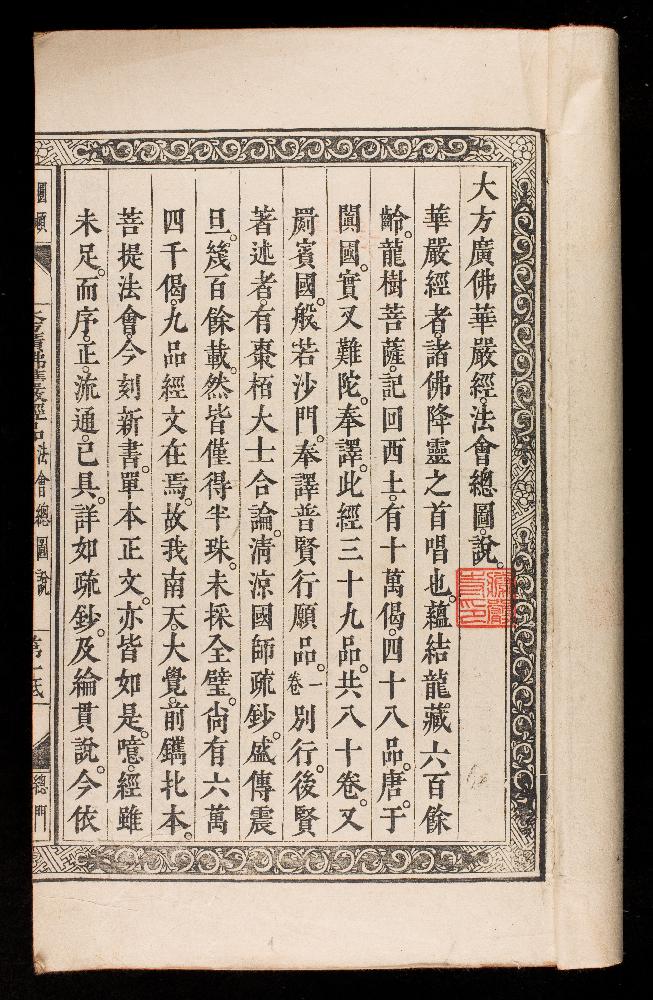 大方廣佛華嚴經。法會總圖。說。
華嚴經者。諸佛降靈之首唱也。蘊結龍藏六百餘
齡。龍樹菩薩。記回西土。有十萬偈。四十八品。唐。于
闐國。實叉難陀。奉譯。此經三十九品。共八十卷。又
罽賓國。般若沙門。奉譯普賢行願品。一卷別行。後賢
著述者。有棗栢大士合論。淸涼國師疏鈔。盛傳震
旦。幾百餘載。然皆僅得半珠。未採全璧。尙有六萬
四千偈。九品經文在焉。故我南天。大覺。前鐫北本。
菩提法會今刻新書。單本正文。亦皆如是。噫。經雖
未足。而序。正。流通。已具。詳如疏鈔。及綸貫說。今依
圖
大方廣佛華嚴經品法會總圖說
第一
總門